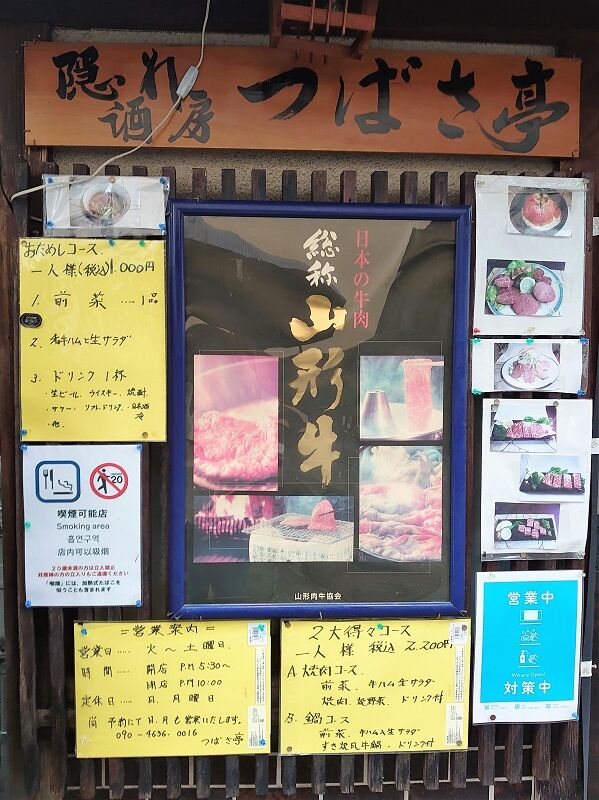 隠れ酒房 つばさ亭
おためしコース
一人様(税込)1.000円
1. 前菜 ....1品
2. 牛ハムと生サラダ
3. ドリンク1杯
・生ビール、ウイスキー、焼酎
・サワー ソフトドリンク、日本酒 冷
・他
日本の牛肉
総称 山形牛
山形肉牛協会
20
喫煙可能店
Smoking area
흡연구역
店内可以吸烟
20歳未満の方は立入禁止
妊産婦の方の立入りもご遠慮ください
「喫煙」には、加熱式たばこを
吸うことも含まれます
=営業案内=
営業日.... 火〜土曜日.
時間.... 開店 P.M 5:30〜
閉店 P.M 10:00
定休日.... 日. 月曜日
尚 予約にて日.月も営業いたします。
090-4636-0016
つばさ亭
2大得々コース
一人様 税込 2.200円
A 焼肉コース
前菜. 牛ハム生サラダ.
焼肉. 焼野菜. ドリンク付
B. 鍋コース
前菜. 牛ハムと生サラダ
すき焼風牛鍋. ドリンク付
営業中
We are Open!
対策中